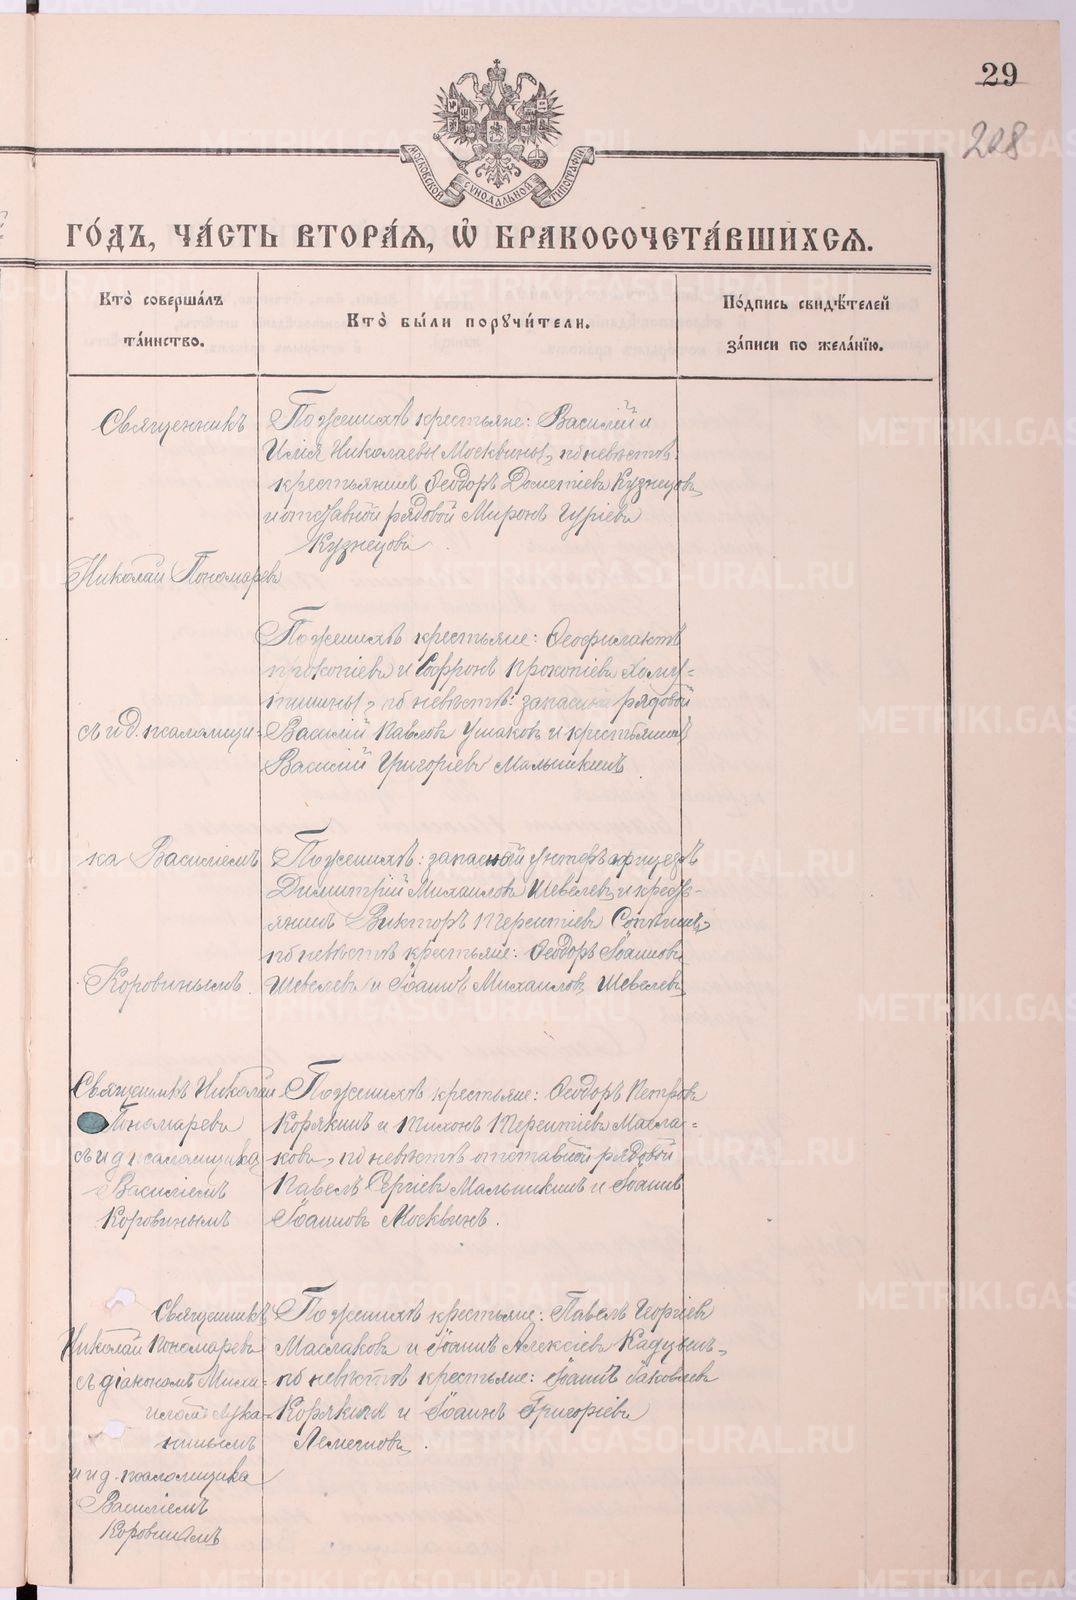 29
208
МОСКОВСКОЙ СУНОДАЛЬНОЙ ТИПОГРАФІИ
ГО́ДЪ, ЧА́СТЬ ВТОРА́Я, Ѽ БРАКОСОЧЕТА́ВШИХСЯ.
Кто̀ соверша́лъ
та́инство.
Кто̀ бы́ли порꙋчи́тели.
По́дпись свидѣ́телей
за́писи по жела́нїю.
Священникъ
По женихѣ крестьяне: Василій и
Илія Николаевы Москвины, по невѣстѣ:
крестьянинъ Ѳеодоръ Дометіевъ Кузнецовъ
и отставной рядовой Миронъ Гуріевъ
Кузнецовъ.
Николай Пономаревъ
По женихѣ крестьяне: Ѳеофилактъ
Прокопіевъ и Софронъ Прокопіевъ
по невѣстѣ: запасный рядовой
съ и д. псаломщи-
Василій Павловъ Ушаковъ и крестьянинъ
Василій Григоріевъ Малышкинъ.
ка Василіемъ
По женихѣ: запасный унтеръ-офицеръ
Димитрій Михаиловъ Шевелевъ и кресть-
янинъ Викторъ Терентіевъ
по невѣстѣ крестьяне: Ѳеодоръ Іоанновъ
Коровинымъ.
Шевелевъ и Іоаннъ Михаиловъ Шевелевъ
Священникъ Николай
Пономаревъ
съ и д псаломщика
Василіемъ
Коровинымъ
По женихѣ крестьяне: Ѳеодоръ Петровъ
Корякинъ и Тихонъ Терентіевъ Масла-
ковъ, по невѣстѣ отставной рядовой
Павелъ Сергіевъ Малышкинъ и Іоаннъ
Іоанновъ Москвинъ.
Священникъ
Николай Пономаревъ
съ діакономъ Миха-
иломъ Лука-
нинымъ
и и д. псаломщика
Василіемъ
Коровинымъ
По женихѣ крестьяне: Павелъ Георгіевъ
Маслаковъ и Іоаннъ Алексіевъ
по невѣстѣ крестьяне: Іоаннъ Іаковлевъ
Корякинъ и Іоаннъ Григоріевъ
METRIKI.GASO-URAL.RU